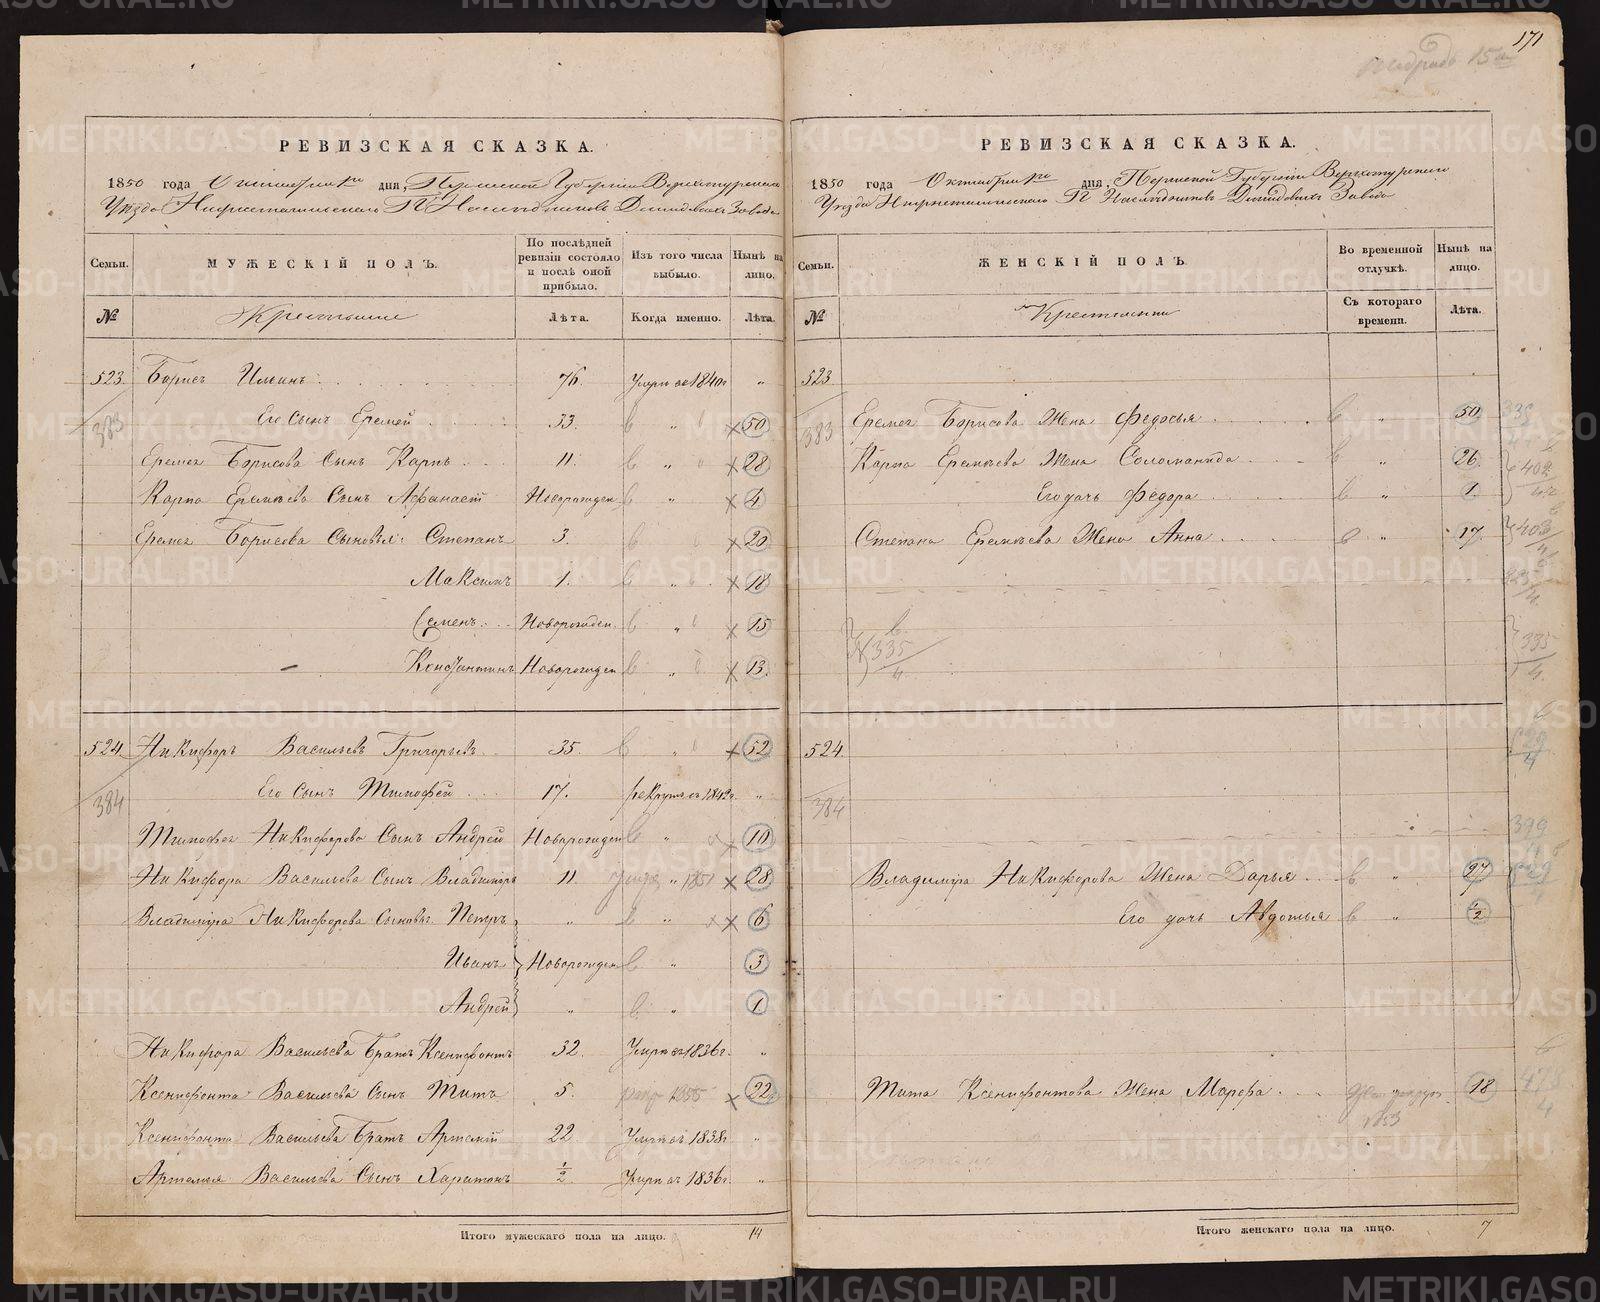 171
РЕВИЗСКАЯ СКАЗКА.
1850 года Октября дня, Пермской Губернiи Верхотурскаго
Уѣзда Нижнетагильскаго Наслѣдниковъ Демидовыхъ Завода
Семьи. МУЖЕСКIЙ ПОЛЪ. По послѣдней ревизiи состояло и послѣ оной прибыло. Изъ того числа выбыло. Нынѣ на лицо.
№ Крестьяне Лѣта. Когда именно. Лѣта.
523. Борисъ Ильинъ 76. Умре въ 1840г "
383 Его сынъ Еремей 33. " 50
Еремея Борисова Сынъ Карпъ 11. " 28
Карпа Еремѣева Сынъ Афанасiй Новорожден " 4
Еремея Борисова Сыновья: Степанъ 3. 20
Максимъ 1. " 18
Семенъ Новорожден " 15
Константинъ Новорожден " 13.
524. Никифоръ Васильевъ Григорьевъ 35. " 52
384 Его Сынъ Тимофей 17. рекрут въ 1842г. "
Тимофея Никифорова Сынъ Андрей Новорожден " 10
Никифора Васильева Сынъ Владимiръ 11. " 1851 28
Владимiра Никифорова Сыновья: Петръ " " 6
Иванъ Новорожден " 3
Андрей " " 1
Никифора Васильева Братъ Ксенофонтъ 32. Умре въ 1836г. "
Ксенофонта Васильева Сынъ Титъ 5. 1855 22
Ксенофонта Васильева Братъ Артемiй 22 Умре въ 1838г "
Артемья Васильева Сынъ Харитонъ ½ Умре въ 1836г. "
Итого мужескаго пола на лицо. 14
РЕВИЗСКАЯ СКАЗКА.
1850 года Октября дня, Пермской Губернiи Верхотурскаго
Уѣзда Нижнетагильскаго Наслѣдниковъ Демидовыхъ Завода
Семьи. ЖЕНСКIЙ ПОЛЪ. Во временной отлучкѣ. Нынѣ на лицо.
№ Крестьянки Съ котораго времени. Лѣта.
523
383 Еремея Борисова Жена Федосья " 50. 335
Карпа Еремѣева Жена Соломанида " 26. 402
Его дочь Федора " 1.
Степана Еремѣева Жена Анна " 17. 403
335
4.
335
4.
524.
384
399
Владимiра Никифорова Жена Дарья " 27
Его дочь Авдотья " ½
Тита Ксенофонтова Жена Марфа 18 478
4
1853
Итого женскаго пола на лицо. 7
METRIKI.GASO-URAL.RU